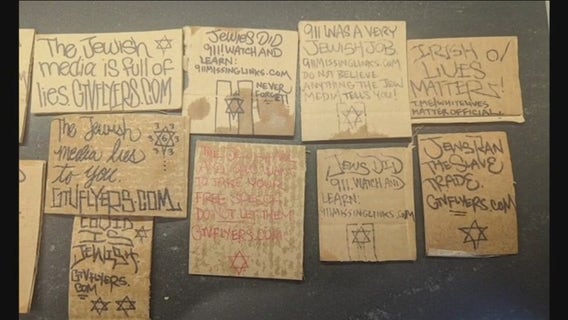 The Jewish
media is full of
lies. GTVFLYERS.COM
JEWIES DID
911! WATCH AND
LEARN:
911MISSINGLINKS.COM
NEVER
FORGET!
911 WAS A VERY
JEWISH JOB.
911MISSINGLINKS.COM
DO NOT BELIEVE
ANYTHING THE JEW
MEDIA TELLS YOU!
IRISH
LIVES
MATTERS!
T.ME/WHITELIVES
MATTEROFFICIAL.
The Jewish
media lies
to you.
GTVFLYERS.COM.
TO TAKE YOUR
FREE SPEECH
DO NOT LET THEM!
GTVFLYERS.COM
JEWS DID
911. WATCH AND
LEARN:
911MISSINGLINKS.COM
JEWS RAN
THE SLAVE
TRADE.
GTVFLYERS.COM
COVID
IS
JEWISH
GTVFLYERS.
COM